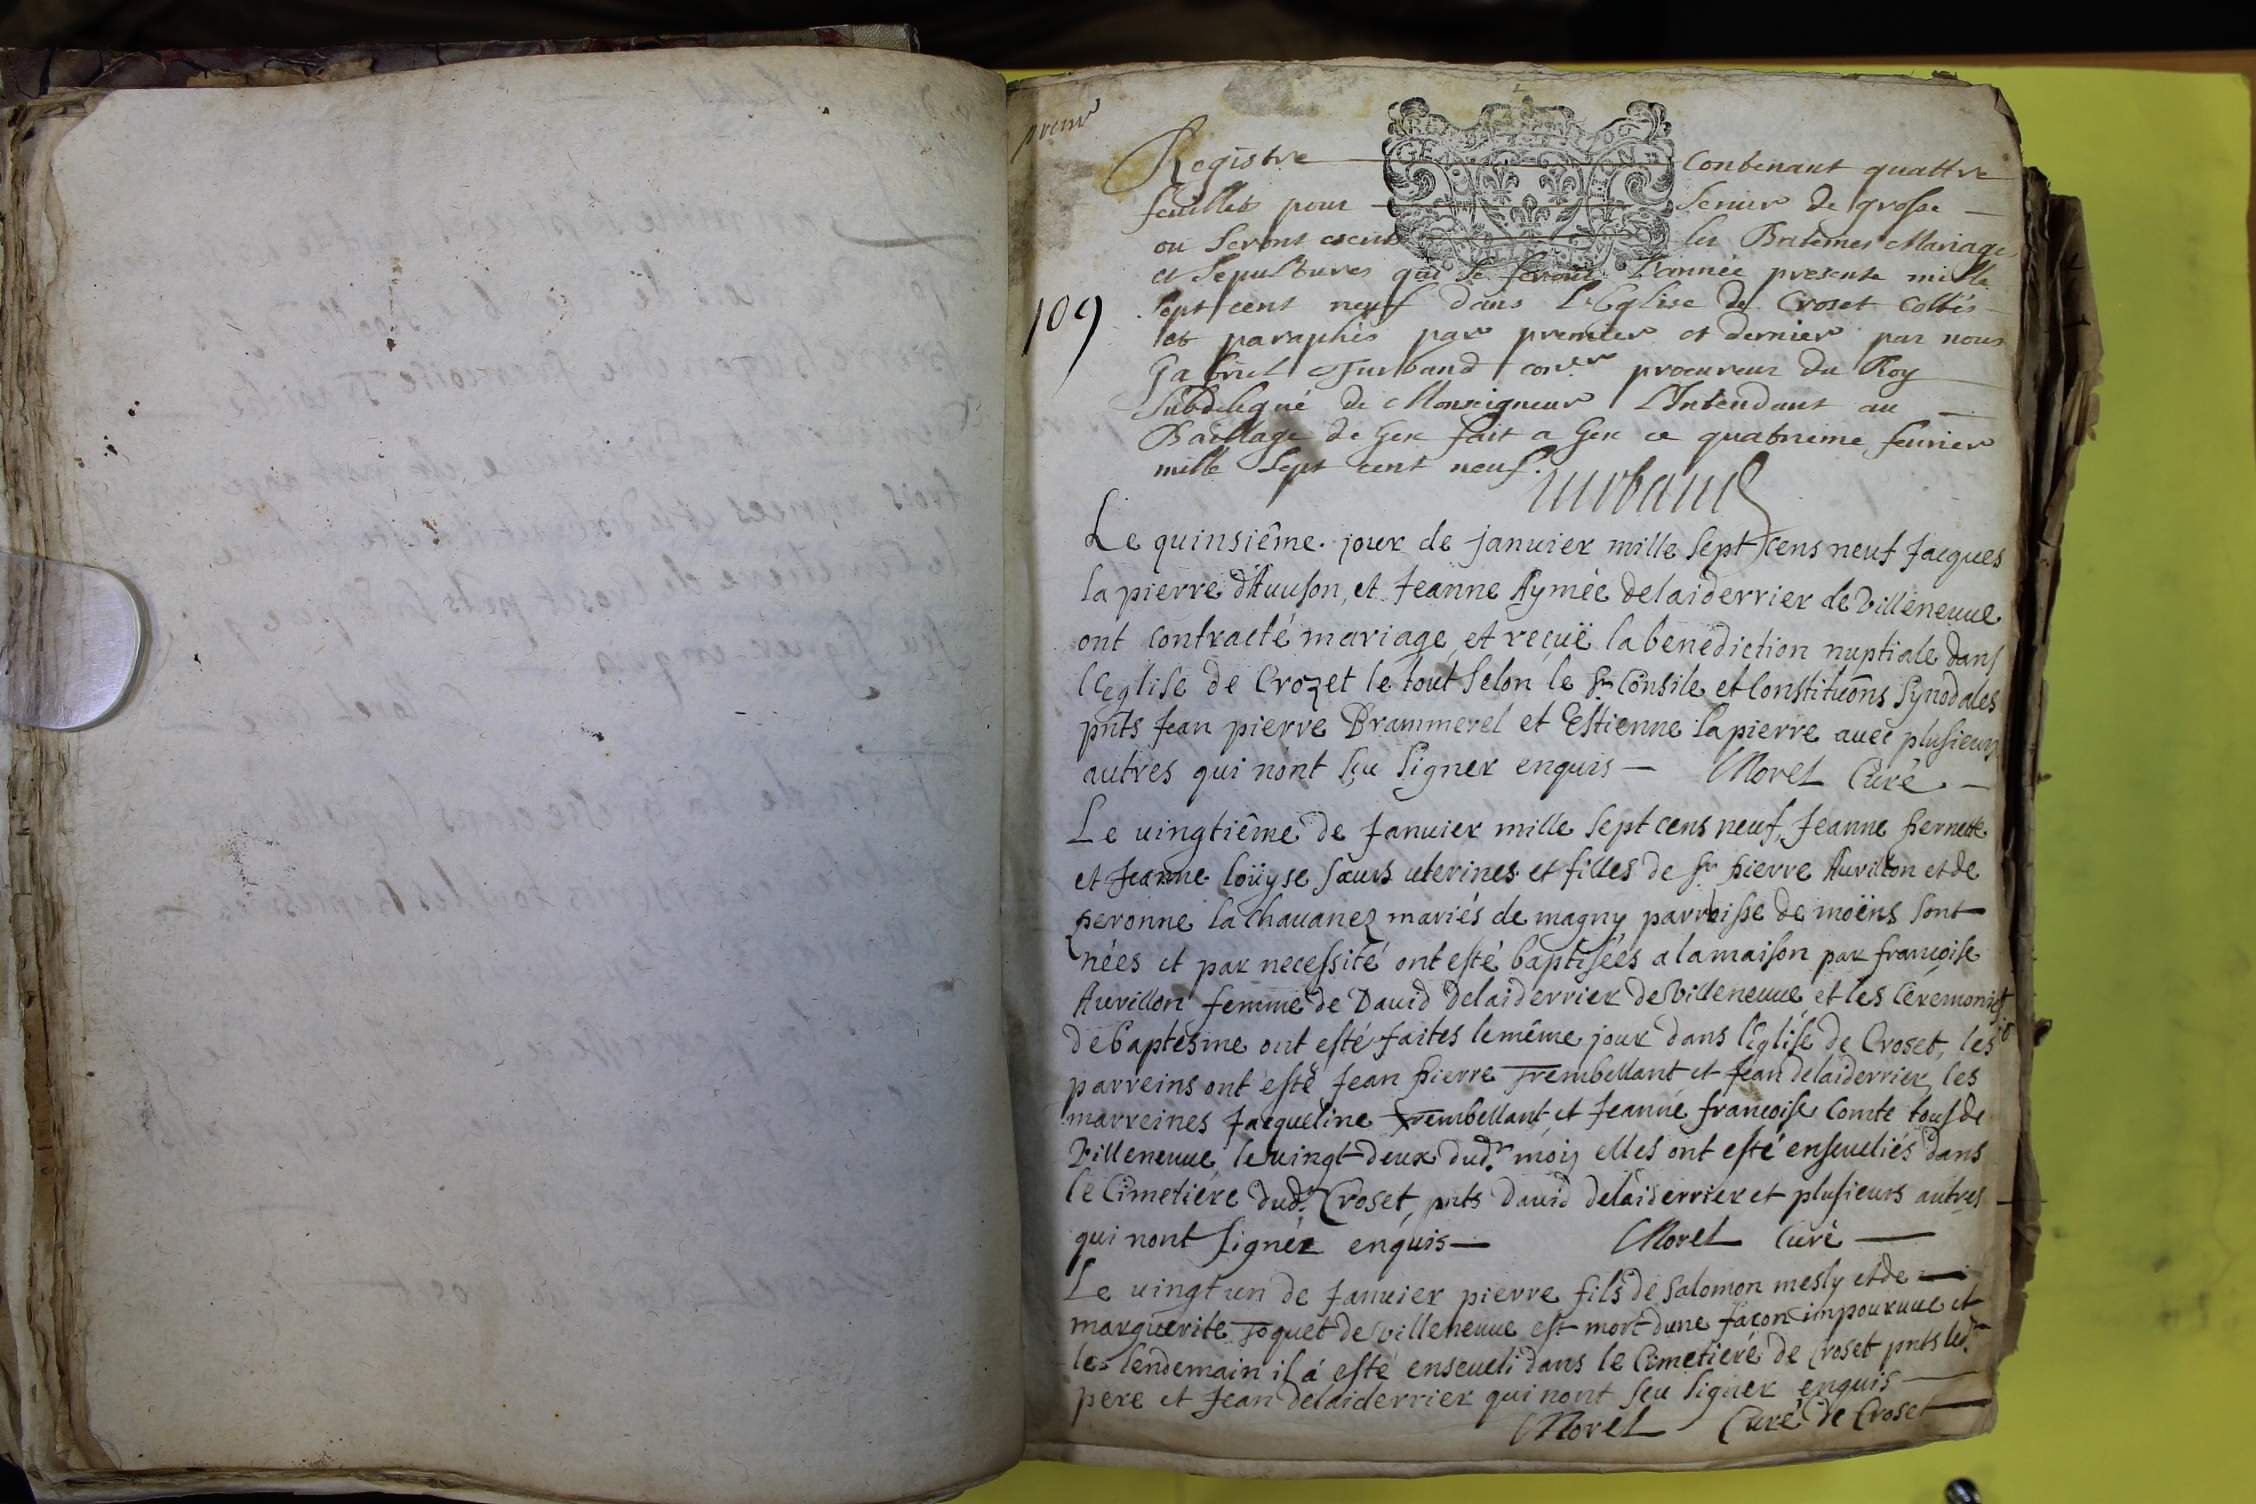 premr
Registre contenant quattre
feuillets pour servir de grosse
ou seront escrits les Batêmes Mariages
et Sepultures qui se feront l'année presente mille
sept cent neuf dans l'Eglise de Croset cottés
et paraphés par premier et dernier par nous
Gabriel Turband coner procureur du Roy
Subdelegué de Monseigneur l'Intendant au
Bailliage de Gex fait a Gex ce quatrieme feurier
mille sept cent neuf.
Turband
109
Le quinsiême jour de januier mille sept cens neuf Jacques
la pierre d'Auuson, et Jeanne Aymée delaiderrier de Villeneuue
ont contracté mariage et reçuë la benediction nuptiale dans
l'Eglise de Crozet le tout selon le St Consile et Constituôns Synodales
pnts Jean pierre Brammerel et Estienne lapierre auec plusieurs
autres qui nont sçu signer enquis — Morel Curé —
Le uingtiême de Januier mille sept cens neuf, Jeanne pernette
et Jeanne loüyse sœurs uterines et filles de Sr pierre Aurillon et de
peronne la chauanez mariés de magny parroisse de moëns sont
nées et par necessité ont esté baptisées a la maison par françoise
Aurillon femme de Dauid delaiderrier de Villeneuue et les Ceremonies
de baptesme ont esté faites le même jour dans l'Eglise de Croset, les
parreins ont esté Jean pierre Trembellant et Jean delaiderrier, les
marreines Jacqueline Trembellant et Jeanne françoise Comte tous de
Villeneuue, le uingt deux dudt mois elles ont esté enseuelies dans
le Cimetiére dudt Croset, pnts Dauid delaiderrier et plusieurs autres
qui nont signer enquis — Morel Curé —
Le uingt un de Januier pierre fils de Salomon mesly et de —
marguerite Joquet de Villeneuue est mort dune façon impouruue et
le lendemain il á esté enseueli dans le Cimetiére de Croset pnts ledt
pere et Jean delaiderrier qui nont sçu signer enquis —
Morel Curé de Croset —